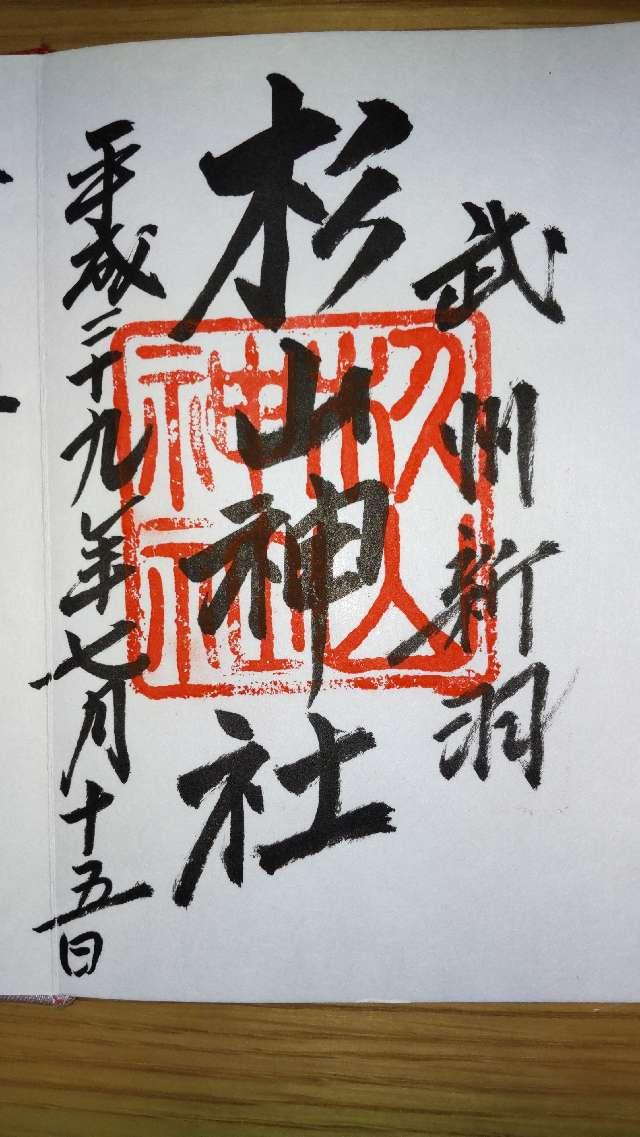 武州新羽
杉山神社
平成二十九年七月十五日
杉山
神社